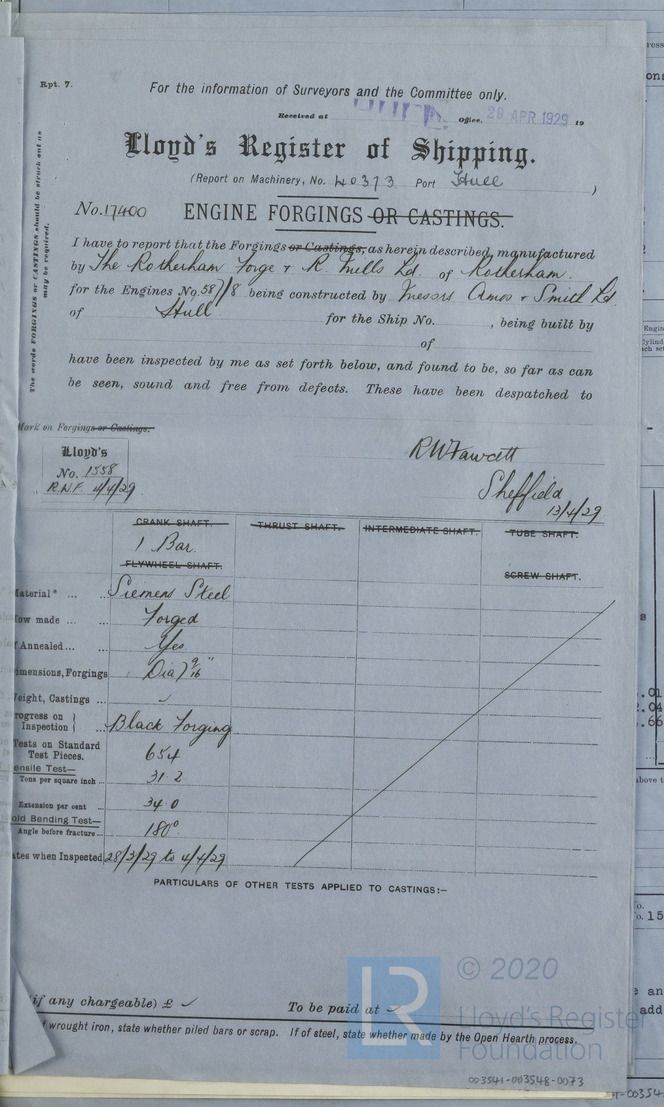 Rpt. 7.
For the information of Surveyors and the Committee only.
Received at Office. 29 APR 1929 19
Lloyd's Register of Shipping.
(Report on Machinery, No. 40373 Port Hull )
No. 17400 ENGINE FORGINGS OR CASTINGS.
The words FORGINGS or CASTINGS should be struck out as
may be required.
I have to report that the Forgings or Castings, as herein described, manufactured
by The Rotherham Forge & R. Mills Ld. of Rotherham.
for the Engines No. 587/8 being constructed by Messrs Amos & Smith Ld.
of Hull for the Ship No. , being built by
of
have been inspected by me as set forth below, and found to be, so far as can
be seen, sound and free from defects. These have been despatched to
Mark on Forgings or Castings.
Lloyd's
No. 1558
4/4/29
RWFawcett
Sheffield
13/4/29
CRANK SHAFT. THRUST SHAFT. INTERMEDIATE SHAFT. TUBE SHAFT.
1 Bar.
FLYWHEEL SHAFT. SCREW SHAFT.
Material* ... ... Siemens Steel
ow made ... ... Forged
f Annealed ... ... Yes
imensions, Forgings Dia 7 9/16"
eight, Castings ...
rogress on }
Inspection } ... Black Forging
Tests on Standard
Test Pieces. 654
ensile Test—
Tons per square inch ... 31.2
Extension per cent ... 34.0
old Bending Test—
Angle before fracture ... 180°
tes when Inspected 28/3/29 to 4/4/29
PARTICULARS OF OTHER TESTS APPLIED TO CASTINGS:—
if any chargeable) £ To be paid at
f wrought iron, state whether piled bars or scrap. If of steel, state whether made by the Open Hearth process.
LR
© 2020
Lloyd's Register
Foundation
003541-003548-0073